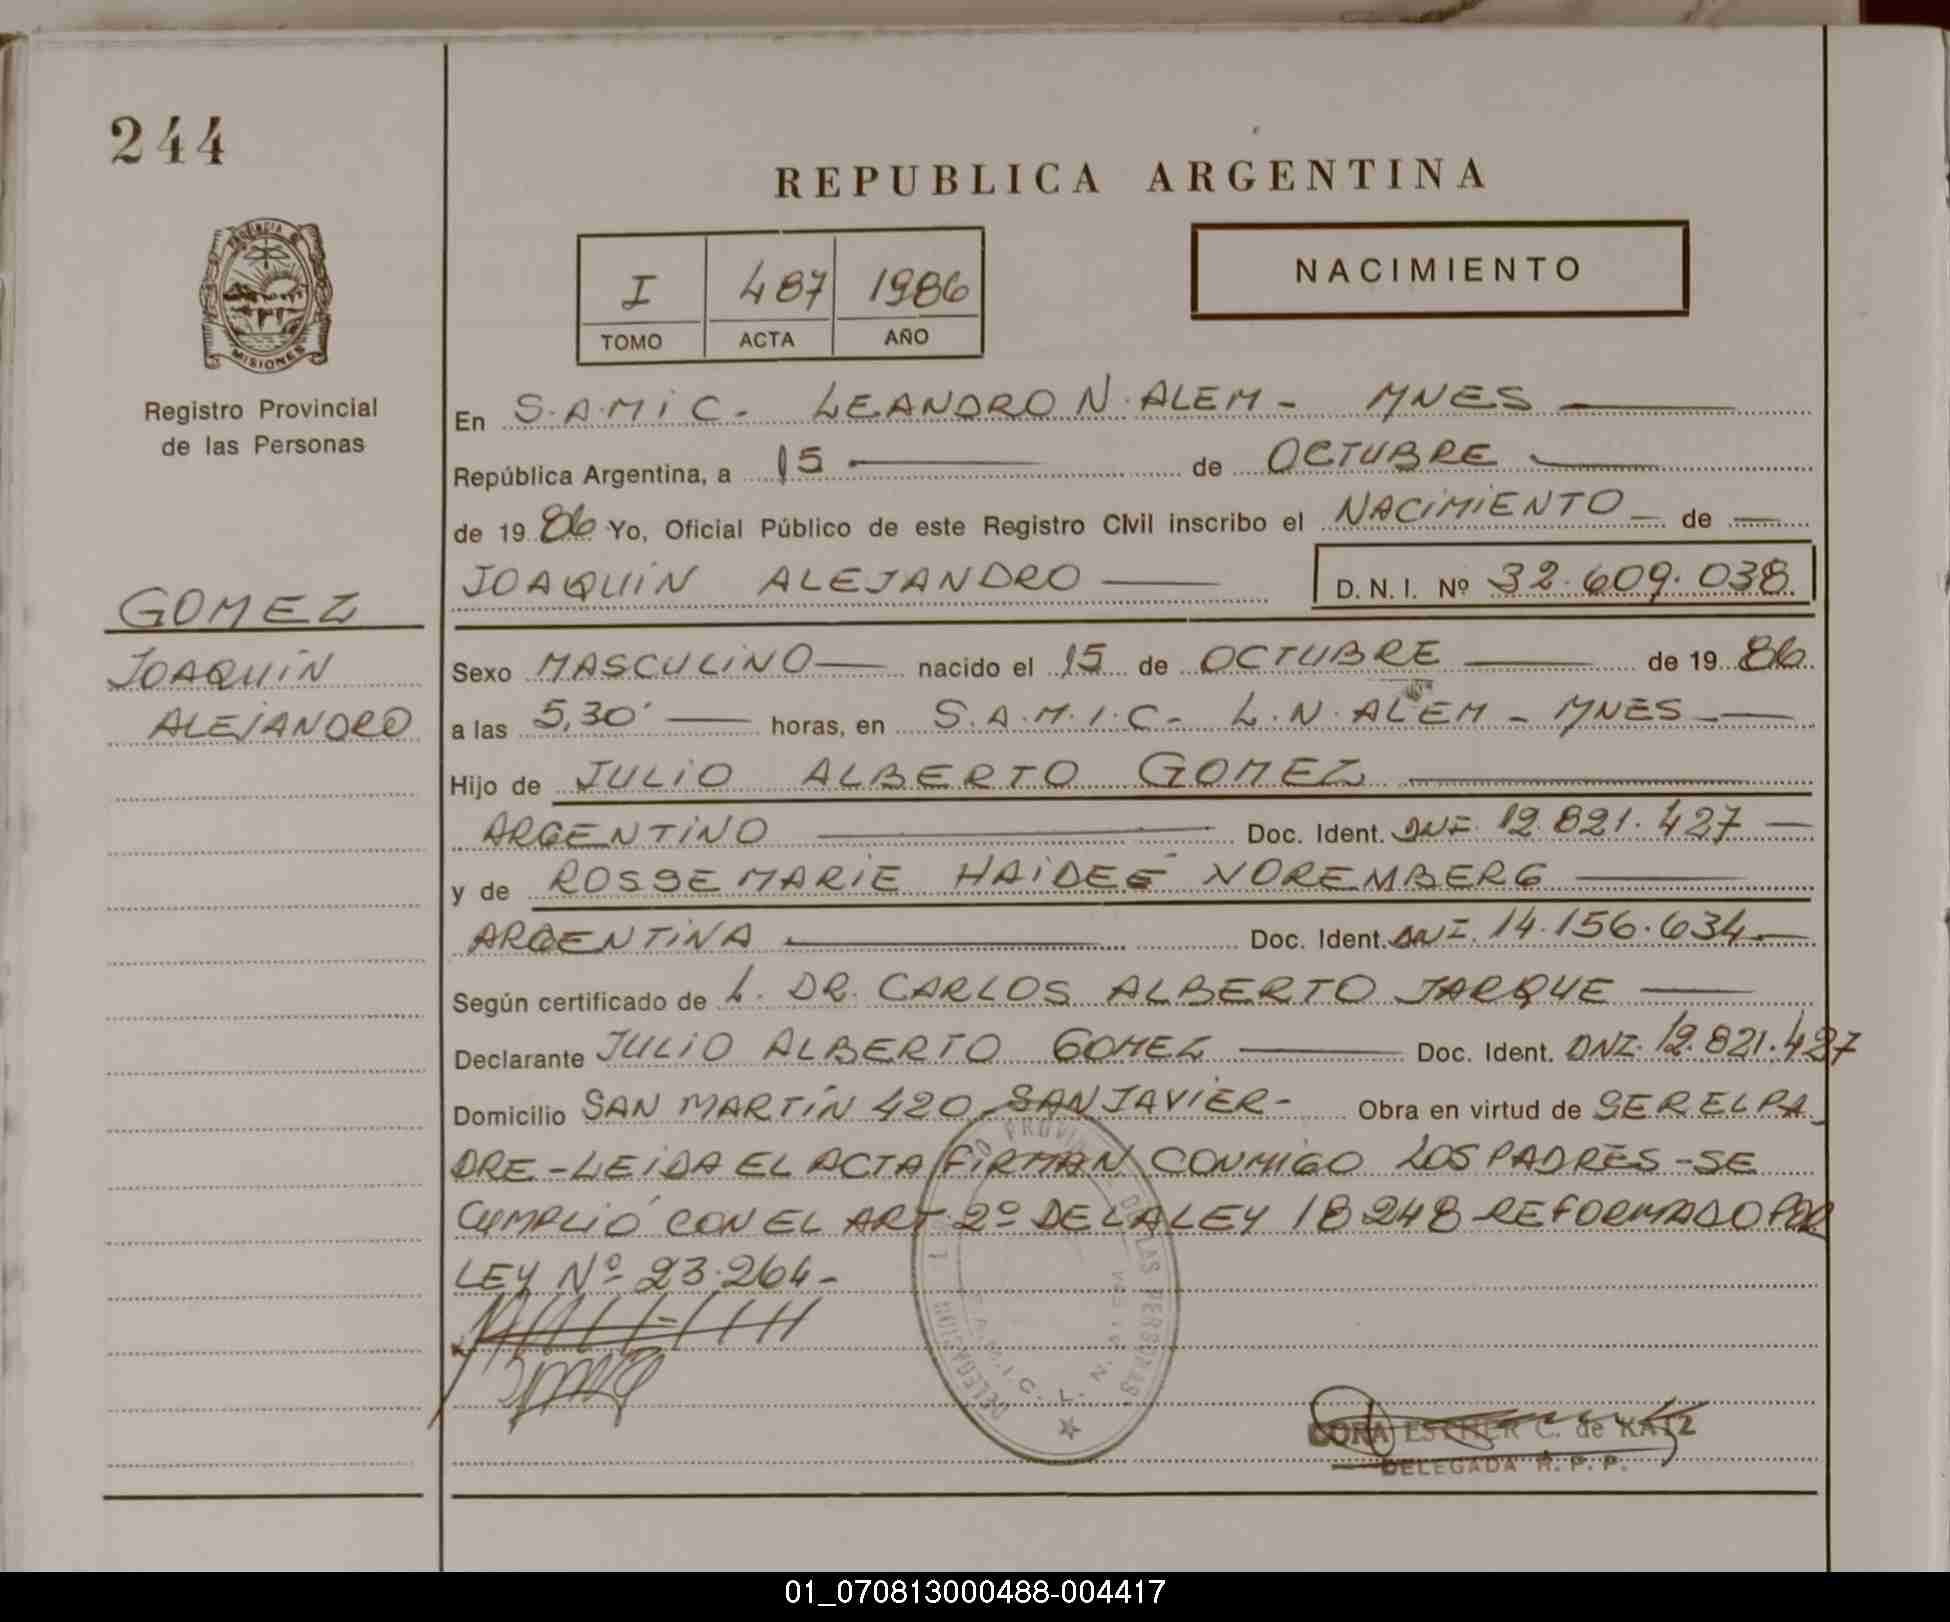 244
REPUBLICA ARGENTINA
PROVINCIA DE
MISIONES
Registro Provincial
de las Personas
I 487 1986
TOMO ACTA AÑO
NACIMIENTO
En S.A.MIC. LEANDRO N. ALEM - MNES
República Argentina, a 15 de OCTUBRE
de 1986 Yo, Oficial Público de este Registro Civil inscribo el NACIMIENTO de
JOAQUIN ALEJANDRO D.N.I. Nº 32.609.038
GOMEZ
JOAQUIN
ALEJANDRO
Sexo MASCULINO nacido el 15 de OCTUBRE de 1986
a las 5,30' horas, en S.A.M.I.C- L.N. ALEM - MNES
Hijo de JULIO ALBERTO GOMEZ
ARGENTINO Doc. Ident. DNI. 12.821.427
y de ROSSEMARIE HAIDEÉ NOREMBERG
ARGENTINA Doc. Ident. DNI. 14.156.634
Según certificado de L. DR. CARLOS ALBERTO JARQUE
Declarante JULIO ALBERTO GOMEZ Doc. Ident. DNI. 12.821.427
Domicilio SAN MARTIN 420 SAN JAVIER- Obra en virtud de SER EL PA
DRE - LEIDA EL ACTA FIRMAN CONMIGO LOS PADRES - SE
CUMPLIÓ CON EL ART 2º DE LA LEY 18248 REFORMADO POR
LEY Nº 23.264-
DELEGACION
LAS PERSONAS
DORA ESTHER C. de KATZ
DELEGADA R.P.P.
01_070813000488-004417